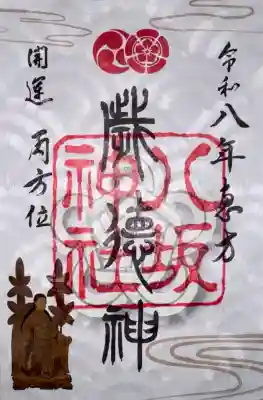 令和八年恵方
歳徳神
八坂神社
開運 丙方位